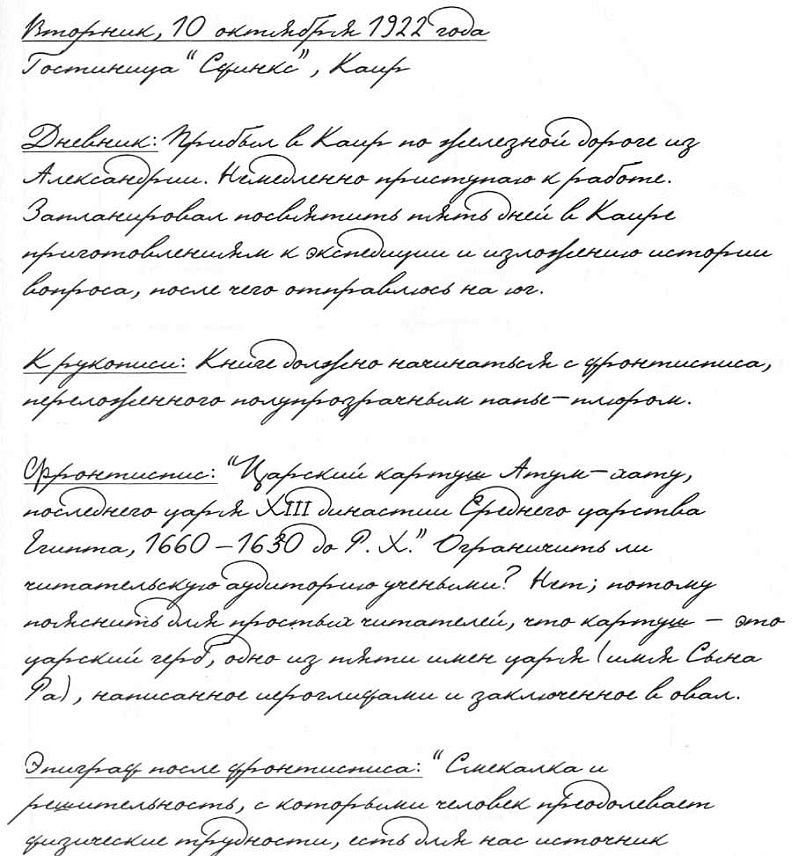 Вторник, 10 октября 1922 года
Гостиница "Сфинкс", Каир
Дневник: Прибыл в Каир по железной дороге из
Александрии. Немедленно приступаю к работе.
Запланировал посвятить пять дней в Каире
приготовлениям к экспедиции и изложению истории
вопроса, после чего отправлюсь на юг.
К рукописи: Книге должно начинаться с фронтисписа,
переложенного полупрозрачным папье-плюром.
Фронтиспис: "Царский картуш Атум-хаду,
последнего царя XIII династии Среднего царства
Египта, 1660 – 1630 до Р. Х." Ограничить ли
читательскую аудиторию учеными? Нет; потому
пояснить для простых читателей, что картуш – это
царский герб, одно из пяти имен царя (имя Сына
Ра), написанное иероглифами и заключенное в овал.
Эпиграф после фронтисписа: "Смекалка и
решительность, с которыми человек преодолевает
физические трудности, есть для нас источник